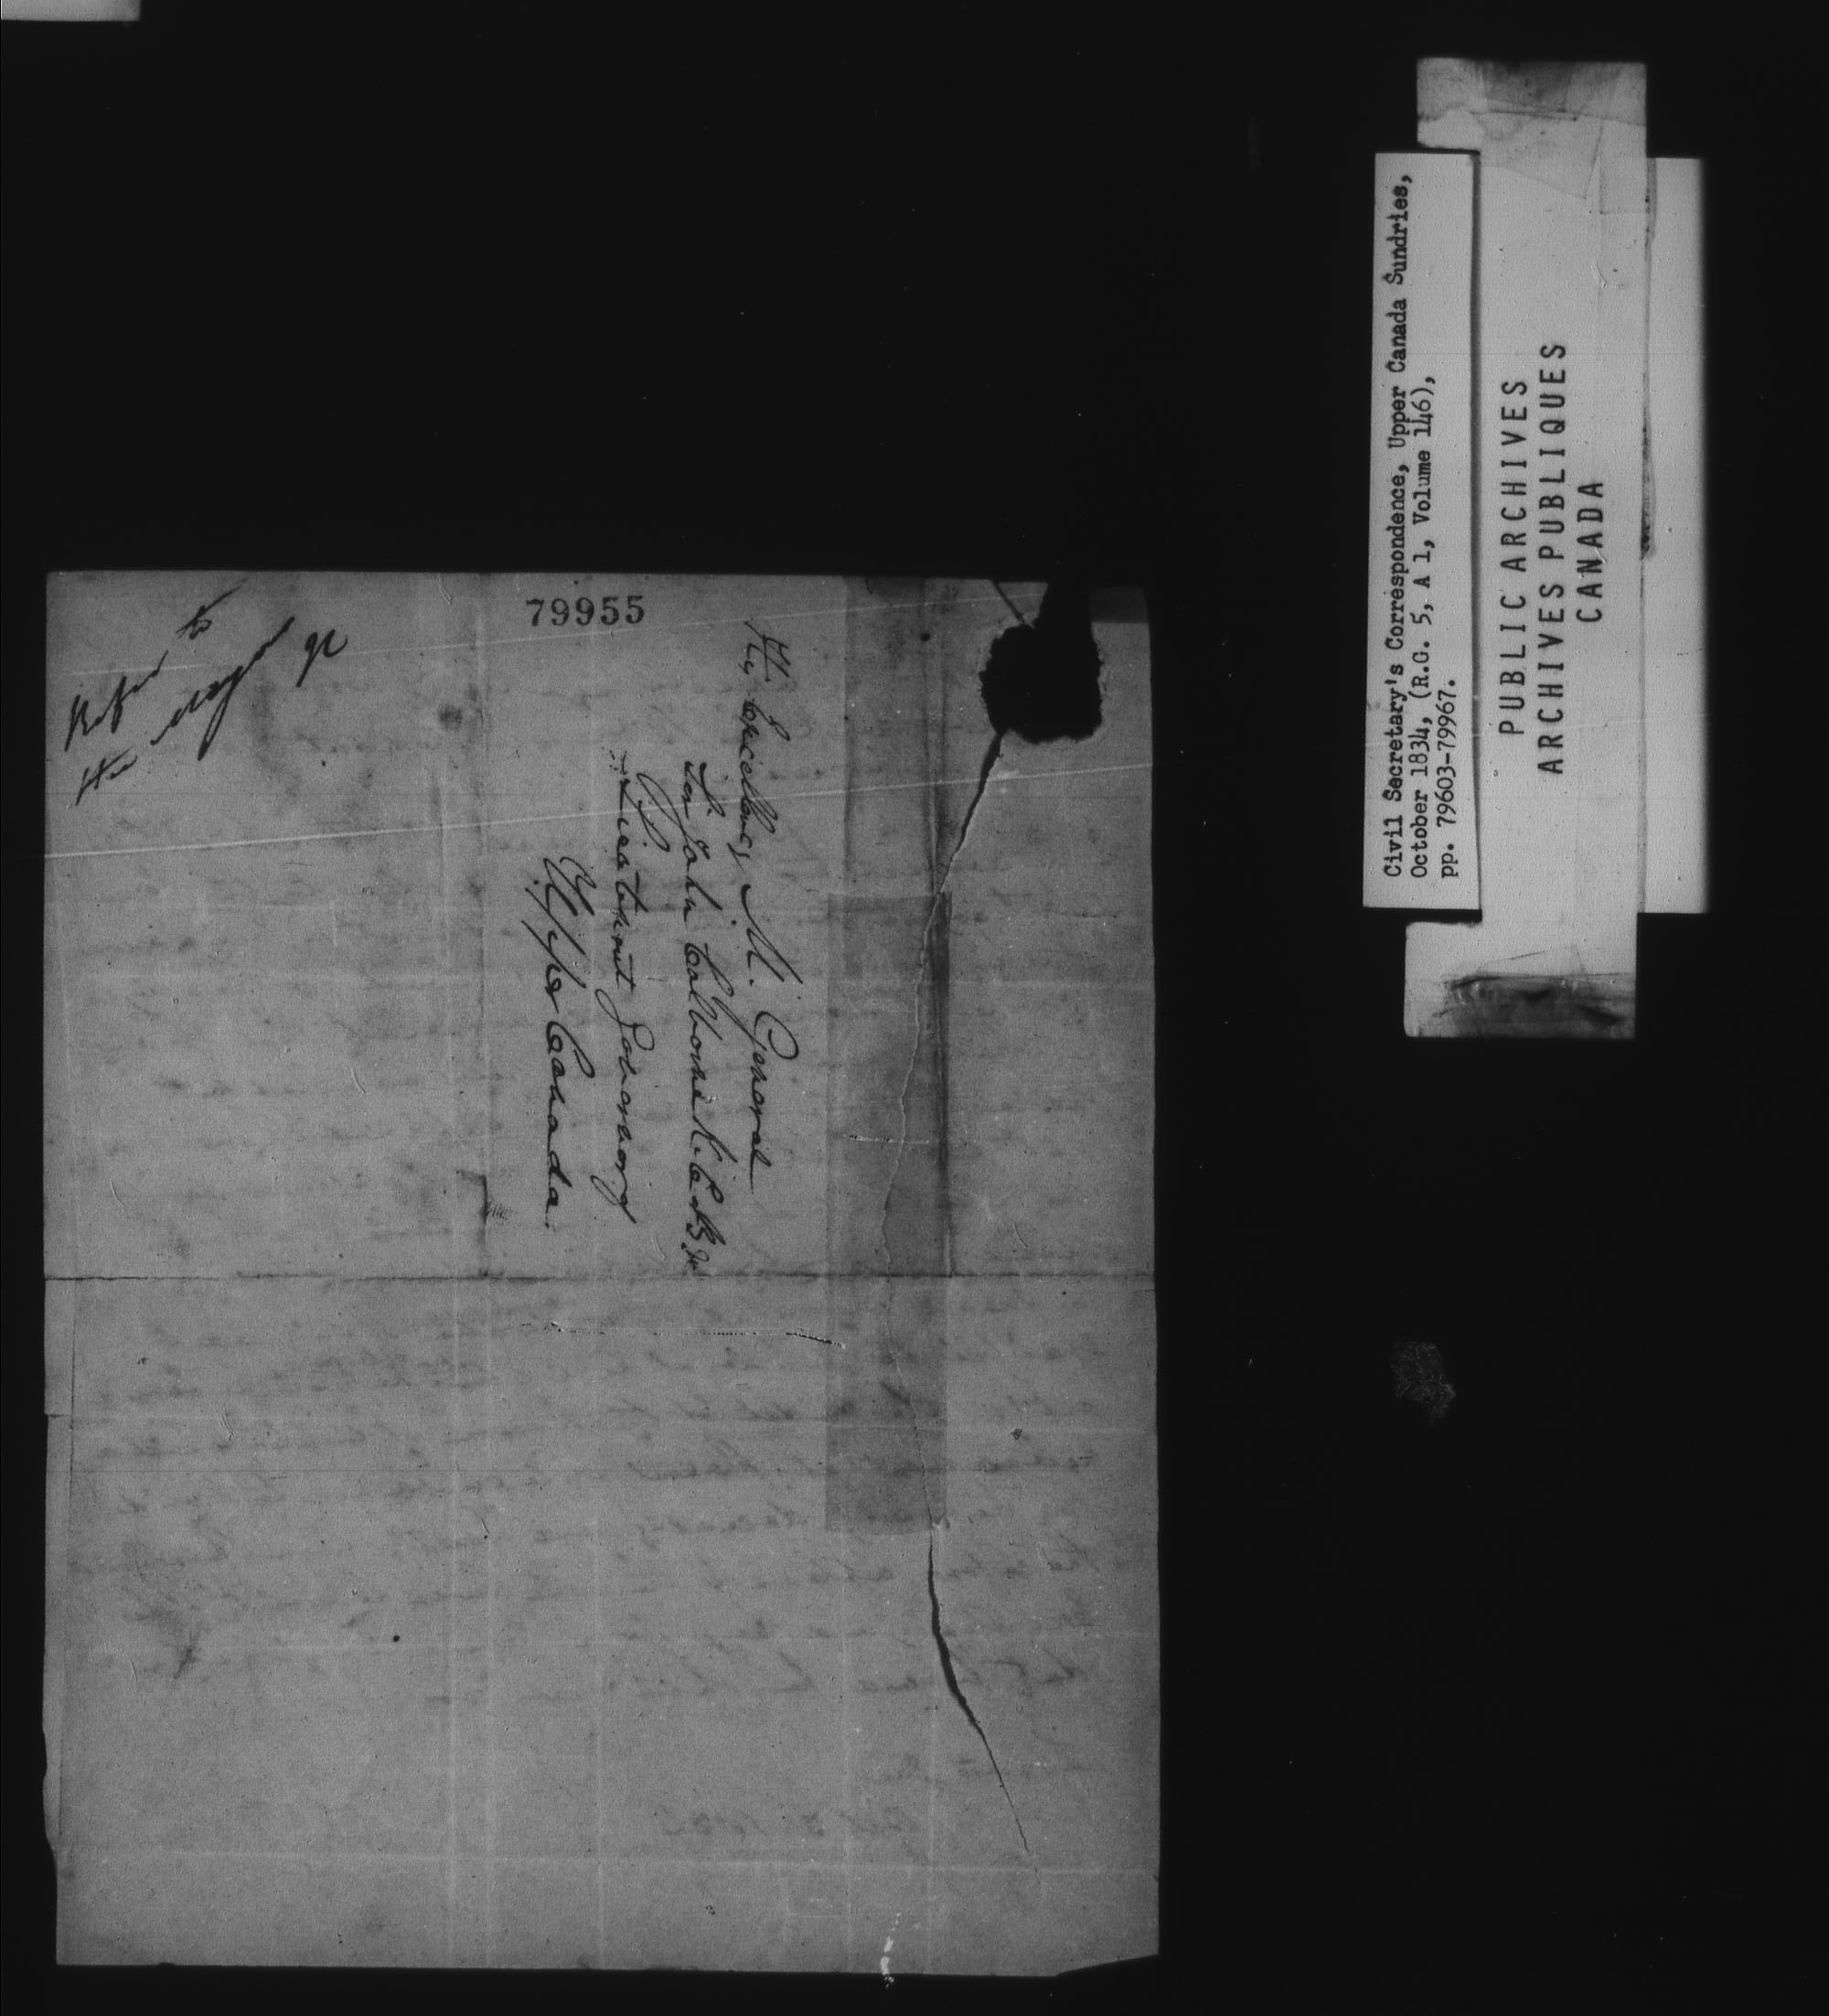 79955
Refer to
the mayor
His Excellency M. General
Sir John Colborne K.C.B. &c
Lieutenant Governor of
Upper Canada.
Civil Secretary's Correspondence, Upper Canada Sundries,
October 1834, (R.G. 5, A 1, Volume 146),
pp. 79603-79967.
PUBLIC ARCHIVES
ARCHIVES PUBLIQUES
CANADA